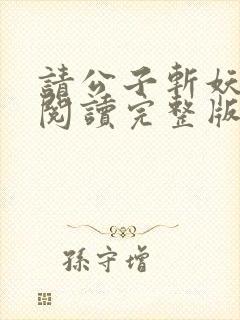 請公子斬妖
閱讀完整版
孫守增